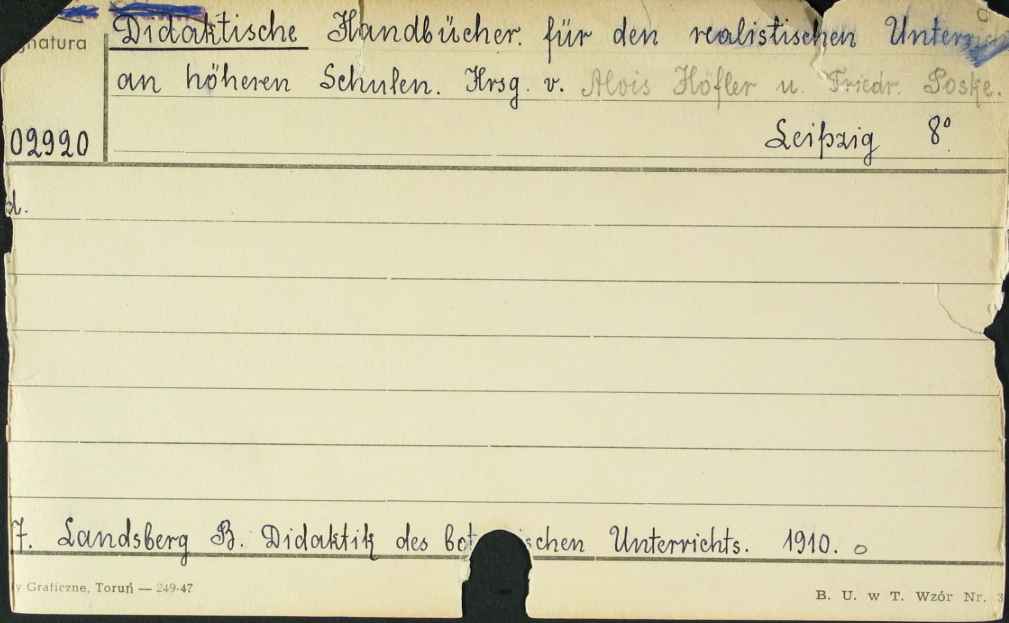 Didaktische Handbücher für den realistischen
an höheren Schulen. Hrsg. v. Alois Höfler u. Friedr. Poske.
02920 Leipzig 8°
d.
7. Landsberg B. Didaktik des Unterrichts. 1910.
Graficzne, Toruń — 249-47
B. U. w T. Wzór Nr. 3